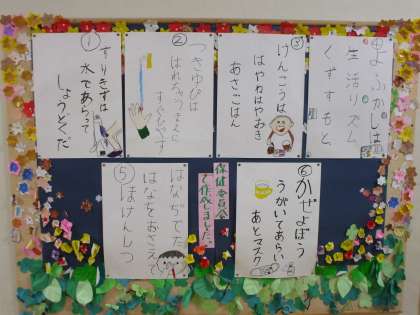 ①
すりきずは
水であらって
しょうどくだ
②
つきゆびは
はれちゃうまえに
すぐひやす
③
けんこうは
はやねはやおき
あさごはん
よふかしは
生活リズム
くずすもと
⑤
はなぢでた
はなをおさえて
ほけんしつ
保健委員会
で作成しました。
⑥
かぜよぼう
うがいてあらい
あとマスク